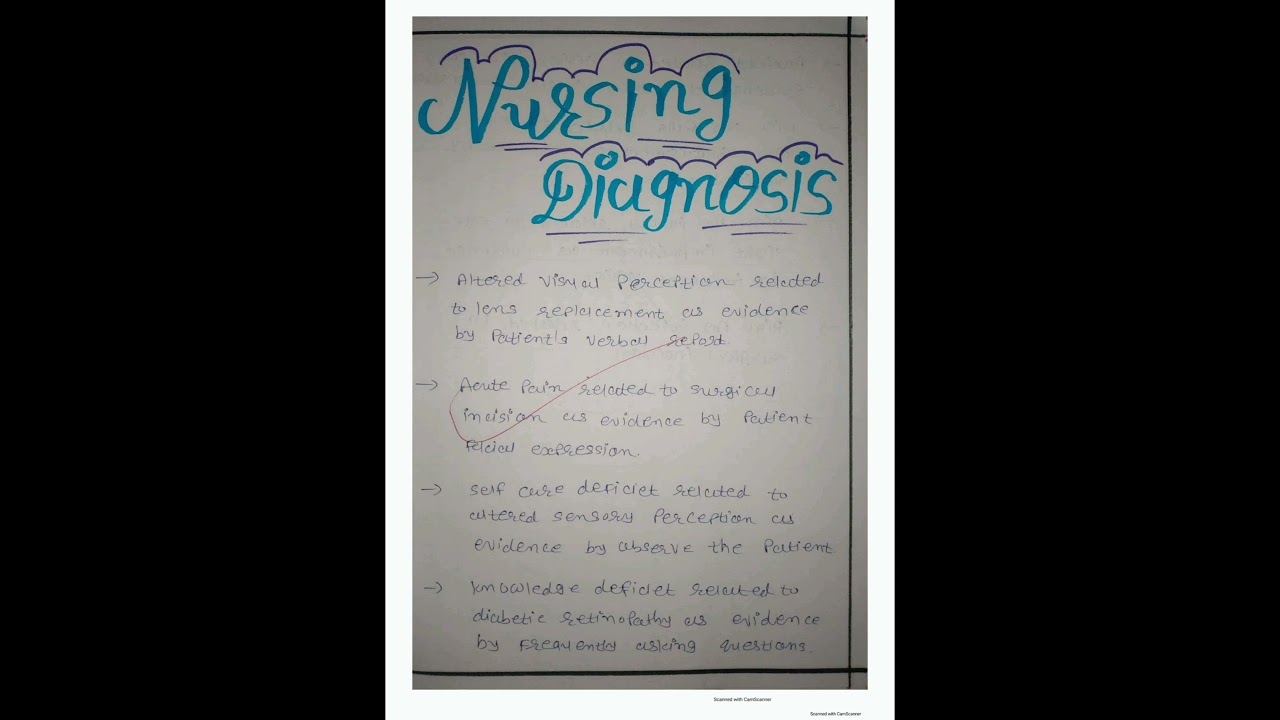 Nursing
Diagnosis
→ Altered visual Perception related
to lens replacement as evidence
by Patient's verbal report.
→ Acute Pain related to surgical
incision as evidence by Patient
facial expression.
→ self care deficiet related to
altered sensory Perception as
evidence by observe the Patient
→ knowledge deficiet related to
diabetic retinopathy as evidence
by frequently asking questions.
Scanned with CamScanner
Scanned with CamScanner